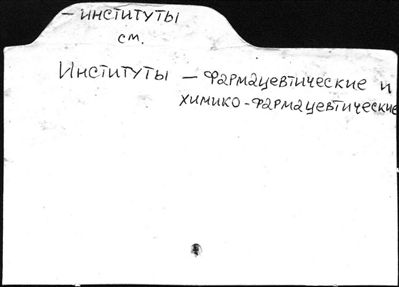 – институты
см.
Институты – фармацевтические и
химико-фармацевтические